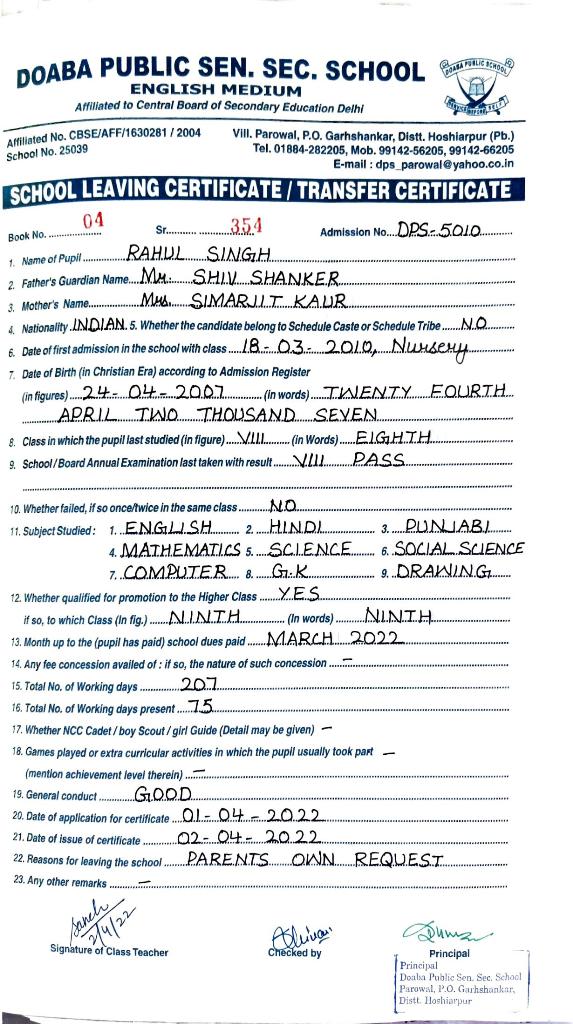 DOABA PUBLIC SEN. SEC. SCHOOL
ENGLISH MEDIUM
Affiliated to Central Board of Secondary Education Delhi
DOABA PUBLIC SCHOOL
SERVICE BEFORE SELF
Affiliated No. CBSE/AFF/1630281 / 2004
School No. 25039
Vill. Parowal, P.O. Garhshankar, Distt. Hoshiarpur (Pb.)
Tel. 01884-282205, Mob. 99142-56205, 99142-66205
E-mail : dps_parowal@yahoo.co.in
SCHOOL LEAVING CERTIFICATE / TRANSFER CERTIFICATE
Book No. 04 Sr. 354 Admission No. DPS-5010
1. Name of Pupil RAHUL SINGH
2. Father's Guardian Name Mr. SHIV SHANKER
3. Mother's Name Mrs. SIMARJIT KAUR
4. Nationality INDIAN. 5. Whether the candidate belong to Schedule Caste or Schedule Tribe NO
6. Date of first admission in the school with class 18-03-2010, Nursery
7. Date of Birth (in Christian Era) according to Admission Register
(in figures) 24-04-2007 (In words) TWENTY FOURTH
APRIL TWO THOUSAND SEVEN
8. Class in which the pupil last studied (In figure) VIII (in Words) EIGHTH
9. School / Board Annual Examination last taken with result VIII PASS
10. Whether failed, if so once/twice in the same class NO
11. Subject Studied : 1. ENGLISH 2. HINDI 3. PUNJABI
4. MATHEMATICS 5. SCIENCE 6. SOCIAL SCIENCE
7. COMPUTER 8. G.K 9. DRAWING
12. Whether qualified for promotion to the Higher Class YES
if so, to which Class (In fig.) NINTH (In words) NINTH
13. Month up to the (pupil has paid) school dues paid MARCH 2022
14. Any fee concession availed of : if so, the nature of such concession —
15. Total No. of Working days 207
16. Total No. of Working days present 75
17. Whether NCC Cadet / boy Scout / girl Guide (Detail may be given) —
18. Games played or extra curricular activities in which the pupil usually took part —
(mention achievement level therein) —
19. General conduct GOOD
20. Date of application for certificate 01-04-2022
21. Date of issue of certificate 02-04-2022
22. Reasons for leaving the school PARENTS OWN REQUEST
23. Any other remarks —
2/4/22
Signature of Class Teacher Checked by Principal
Principal
Doaba Public Sen. Sec. School
Parowal, P.O. Garhshankar,
Distt. Hoshiarpur